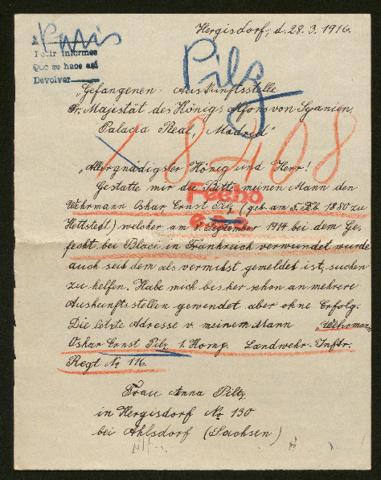 Hergisdorf, d. 28. 3. 1916.
Paris
Pedir informes
Que se hace así
Devolver
Pilz
"Gefangenen-Auskunftsstelle
Sr. Majestät des Königs Alfons von Spanien,
Palacia Real, Madrid"
18408
"Allergnädigster König und Herr!
Gestatte mir die Bitte meinen Mann den
Wehrmann Oskar Ernst Pilz (geb. am 1880 zu
Hettstedt) welcher am September 1914 bei dem Ge-
fecht bei in Frankreich verwundet wurde
auch seit dem als vermißt gemeldet ist, suchen
zu helfen. Habe mich bisher schon an mehrere
Auskunftsstellen gewendet aber ohne Erfolg.
Die letzte Adresse v. meinem Mann Wehrmann
Oskar Ernst Pilz 1. Komg. Landwehr-Inftr.
Regt No 116.
Frau Anna Pilz
in Hergisdorf No 130
bei Ahlsdorf (Sachsen)
Fecho